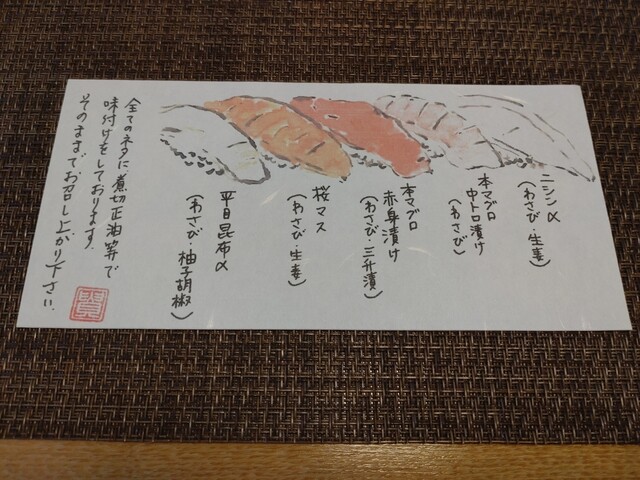 ニシン〆
（わさび・生姜）
本マグロ
中トロ漬け
（わさび）
本マグロ
赤身漬け
（わさび・三升漬）
桜マス
（わさび・生姜）
平目昆布〆
（わさび・柚子胡椒）
全てのネタに煮切正油等で
味付けをしております。
そのままでお召し上がり下さい。